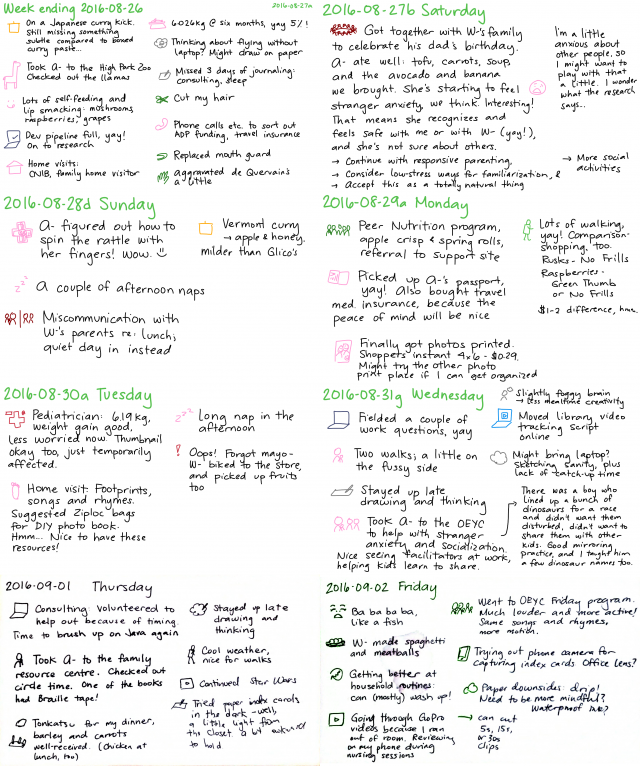 Week ending 2016-08-26
2016-08-27a
On a Japanese curry kick.
Still missing something
subtle compared to boxed
curry paste...
Took A- to the High Park Zoo
Checked out the llamas
Lots of self-feeding and
lip smacking: mushrooms,
raspberries, grapes
Dev pipeline full, yay!
On to research
Home visits:
CNIB, family home visitor
6.026kg @ six months, yay 5%!
Thinking about flying without
laptop? Might draw on paper
Missed 3 days of journaling:
consulting, sleep
Cut my hair
Phone calls etc. to sort out
ADP funding, travel insurance
Replaced mouth guard
aggravated de Quervain's
a little
2016-08-27b Saturday
Got together with W-'s family
to celebrate his dad's birthday.
A- ate well: tofu, carrots, soup,
and the avocado and banana
we brought. She's starting to feel
stranger anxiety, we think. Interesting!
That means she recognizes and
feels safe with me or with W- (yay!),
and she's not sure about others.
→ Continue with responsive parenting,
→ Consider low-stress ways for familiarization, &
→ Accept this as a totally natural thing
I'm a little
anxious about
other people, so
I might want to
play with that
a little. I wonder
what the research
says...
→ More social
activities
2016-08-28d Sunday
A- figured out how to
spin the rattle with
her fingers! Wow.
zzz A couple of afternoon naps
Miscommunication with
W-'s parents re: lunch;
quiet day in instead
Vermont curry
→ apple & honey.
milder than Glico's
2016-08-29a Monday
Peer Nutrition program,
apple crisp & spring rolls,
referral to support site
Picked up A-'s passport,
yay! Also bought travel
med. insurance, because the
peace of mind will be nice
Finally got photos printed.
Shoppers instant 4x6 - $0.29.
Might try the other photo
print place if I can get organized
Lots of walking,
yay! Comparison-
shopping, too.
Rusks - No Frills
Raspberries -
Green Thumb
or No Frills
$1-2 difference, hmm.
2016-08-30a Tuesday
Pediatrician: 6.19kg,
weight gain good,
less worried now. Thumbnail
okay too, just temporarily
affected.
Home visit: Footprints,
songs and rhymes.
Suggested Ziploc bags
for DIY photo book.
Hmm... Nice to have these
resources!
zzz Long nap in the
afternoon
! Oops! Forgot mayo -
W- biked to the store,
and picked up fruits
too
2016-08-31g Wednesday
Fielded a couple of
work questions, yay
Two walks; a little on
the fussy side
Stayed up late
drawing and thinking
Took A- to the OEYC
to help with stranger
anxiety and socialization.
Nice seeing facilitators at work,
helping kids learn to share.
Slightly foggy brain
→ less mealtime creativity
Moved library video
tracking script
online
Might bring laptop?
Sketching sanity, plus
lack of catch-up time
There was a boy who
lined up a bunch of
dinosaurs for a race
and didn't want them
disturbed, didn't want to
share them with other
kids. Good mirroring
practice, and I taught him
a few dinosaur names too.
2016-09-01 Thursday
Consulting volunteered to
help out because of timing.
Time to brush up on Java again
Took A- to the family
resource centre. Checked out
circle time. One of the books
had Braille tape!
Tonkatsu for my dinner,
barley and carrots
well-received. (chicken at
lunch, too)
Stayed up late
drawing and
thinking
Cool weather,
nice for walks
Continued Star Wars
Tried paper index cards
in the dark - well,
a little light from
the closet. a bit awkward
to hold
2016-09-02 Friday
Ba ba ba ba,
like a fish
W- made spaghetti
and meatballs
Getting better at
household routines.
can (mostly) wash up!
Going through GoPro
videos because I ran
out of room. Reviewing
on my phone during
nursing sessions
Went to OEYC Friday program.
Much louder and more active!
Same songs and rhymes,
more motion.
Trying out phone camera for
capturing index cards Office Lens?
Paper downsides: drip!
Need to be more mindful?
waterproof ink?
→ can cut
5s, 15s,
or 30s
clips